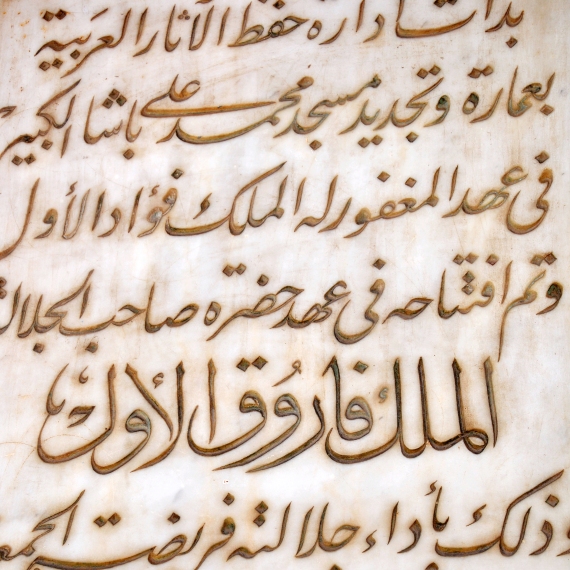 بدأت إدارة حفظ الآثار العربية
بعمارة وتجديد مسجد محمد على باشا الكبير
فى عهد المغفور له الملك فؤاد الأول
وتم افتتاحه فى عهد حضرة صاحب الجلالة
الملك فاروق الأول
وذلك بأداء جلالته فريضة الجمعة